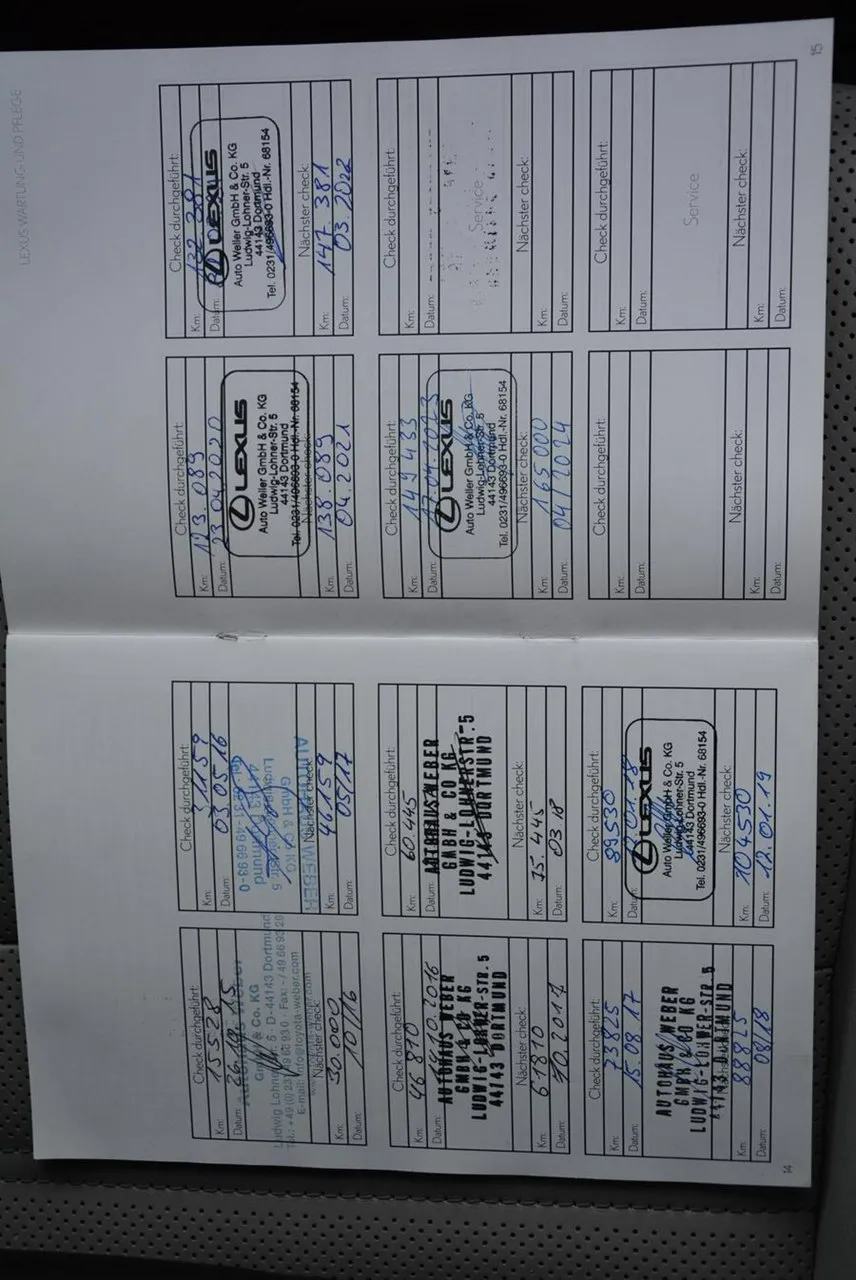 LEXUS WARTUNG UND PFLEGE
Check durchgeführt:
Km: 15528
Datum:
GmbH & Co. KG
Ludwig Lohner Str. 5 · D-44143 Dortmund
E-mail: info@toyota-weber.com
Nächster check:
Km: 30.000
Datum: 10/16
Check durchgeführt:
Km: 31159
Datum: 03.05.16
AUTOHAUS WEBER
GmbH & Co. KG
Nächster check:
Km: 46159
Datum: 05/17
Check durchgeführt:
Km: 46 810
Datum: 10.2016
AUTOHAUS WEBER
GMBH & CO KG
LUDWIG-LOHNER-STR.5
44143 DORTMUND
Nächster check:
Km: 61810
Datum: 10.2017
Check durchgeführt:
Km: 60.445
Datum:
AUTOHAUS WEBER
GMBH & CO KG
LUDWIG-LOHNERSTR.5
44143 DORTMUND
Nächster check:
Km: 75.445
Datum: 03 18
Check durchgeführt:
Km: 73825
Datum: 15.08.17
AUTOHAUS WEBER
GMBH & CO KG
LUDWIG-LOHNER-STR.5
44143 DORTMUND
Km: 88825
Datum: 08/18
Check durchgeführt:
Km: 89530
Datum: 12.01.18
LEXUS
Auto Weller GmbH & Co. KG
Ludwig-Lohner-Str. 5
44143 Dortmund
Tel. 0231/496693-0 Hdl.-Nr. 68154
Nächster check:
Km: 104530
Datum: 12.01.19
14
Check durchgeführt:
Km: 123.089
Datum: 23.04.2020
LEXUS
Auto Weller GmbH & Co. KG
Ludwig-Lohner-Str. 5
44143 Dortmund
Tel. 0231/496693-0 Hdl.-Nr. 68154
Nächster check:
Km: 138.089
Datum: 04.2021
Check durchgeführt:
Km: 132 381
Datum:
LEXUS
Auto Weller GmbH & Co. KG
Ludwig-Lohner-Str. 5
44143 Dortmund
Tel. 0231/496693-0 Hdl.-Nr. 68154
Nächster check:
Km: 147 381
Datum: 03.2022
Check durchgeführt:
Km: 149433
Datum: 17.04.2023
LEXUS
Auto Weller GmbH & Co. KG
Ludwig-Lohner-Str. 5
44143 Dortmund
Tel. 0231/496693-0 Hdl.-Nr. 68154
Nächster check:
Km: 165000
Datum: 04/2024
Check durchgeführt:
Km:
Datum:
Service
Nächster check:
Km:
Datum:
Check durchgeführt:
Km:
Datum:
Nächster check:
Km:
Datum:
Check durchgeführt:
Km:
Datum:
Service
Nächster check:
Km:
Datum:
15